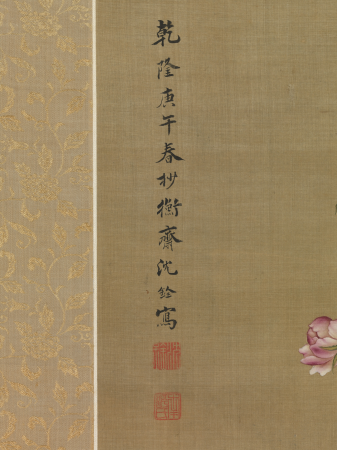 乾隆庚午春杪衡齋沈銓寫